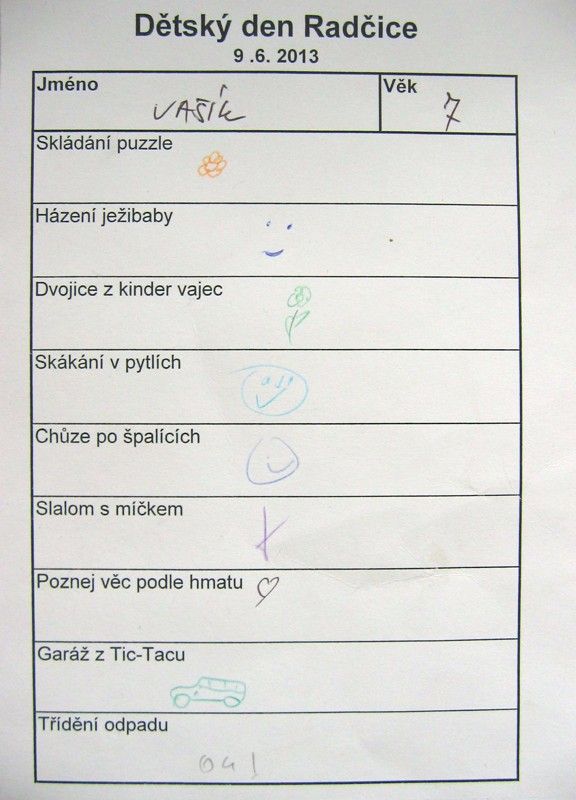 Dětský den Radčice
9 .6. 2013
Jméno
VAŠÍK
Věk
7
Skládání puzzle
Házení ježibaby
Dvojice z kinder vajec
Skákání v pytlích
Chůze po špalících
Slalom s míčkem
Poznej věc podle hmatu
Garáž z Tic-Tacu
Třídění odpadu